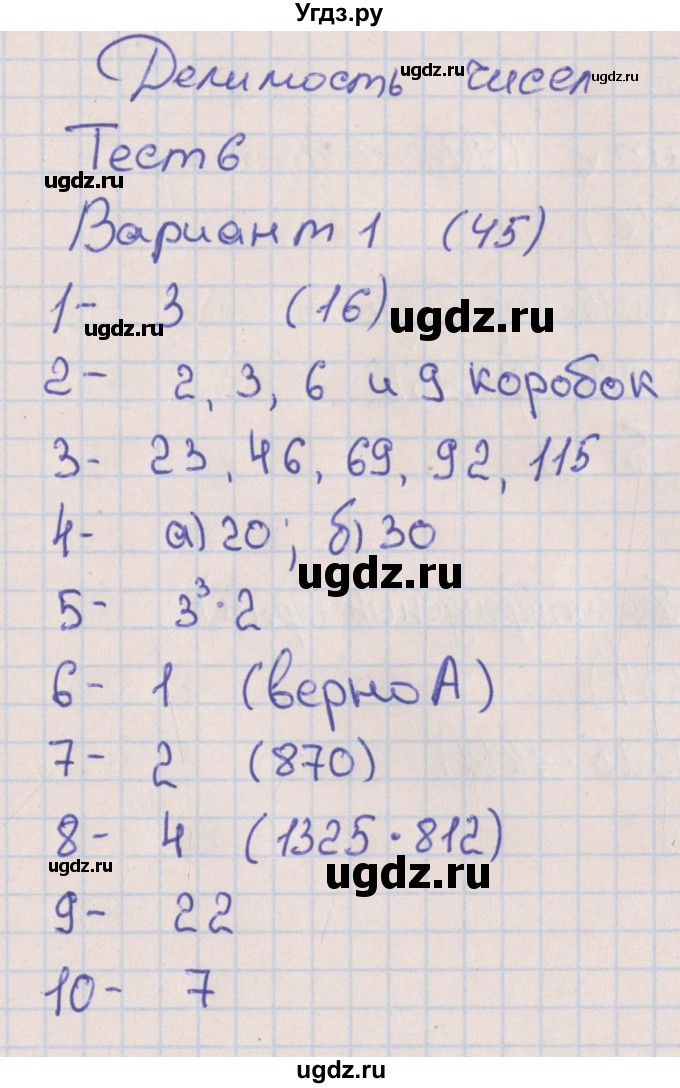 Угдз.ру
Делимость чисел
ugdz.ru ugdz.ru
Тест 6
ugdz.ru
Вариант 1 (45)
1- 3 (16)
ugdz.ru ugdz.ru
2- 2, 3, 6 и 9 коробок
3- 23, 46, 69, 92, 115
4- а) 20; б) 30
ugdz.ru
5- 3³·2
6- 1 (верно А)
7- 2 (870)
8- 4 (1325·812)
ugdz.ru ugdz.ru
9- 22
10- 7
ugdz.ru